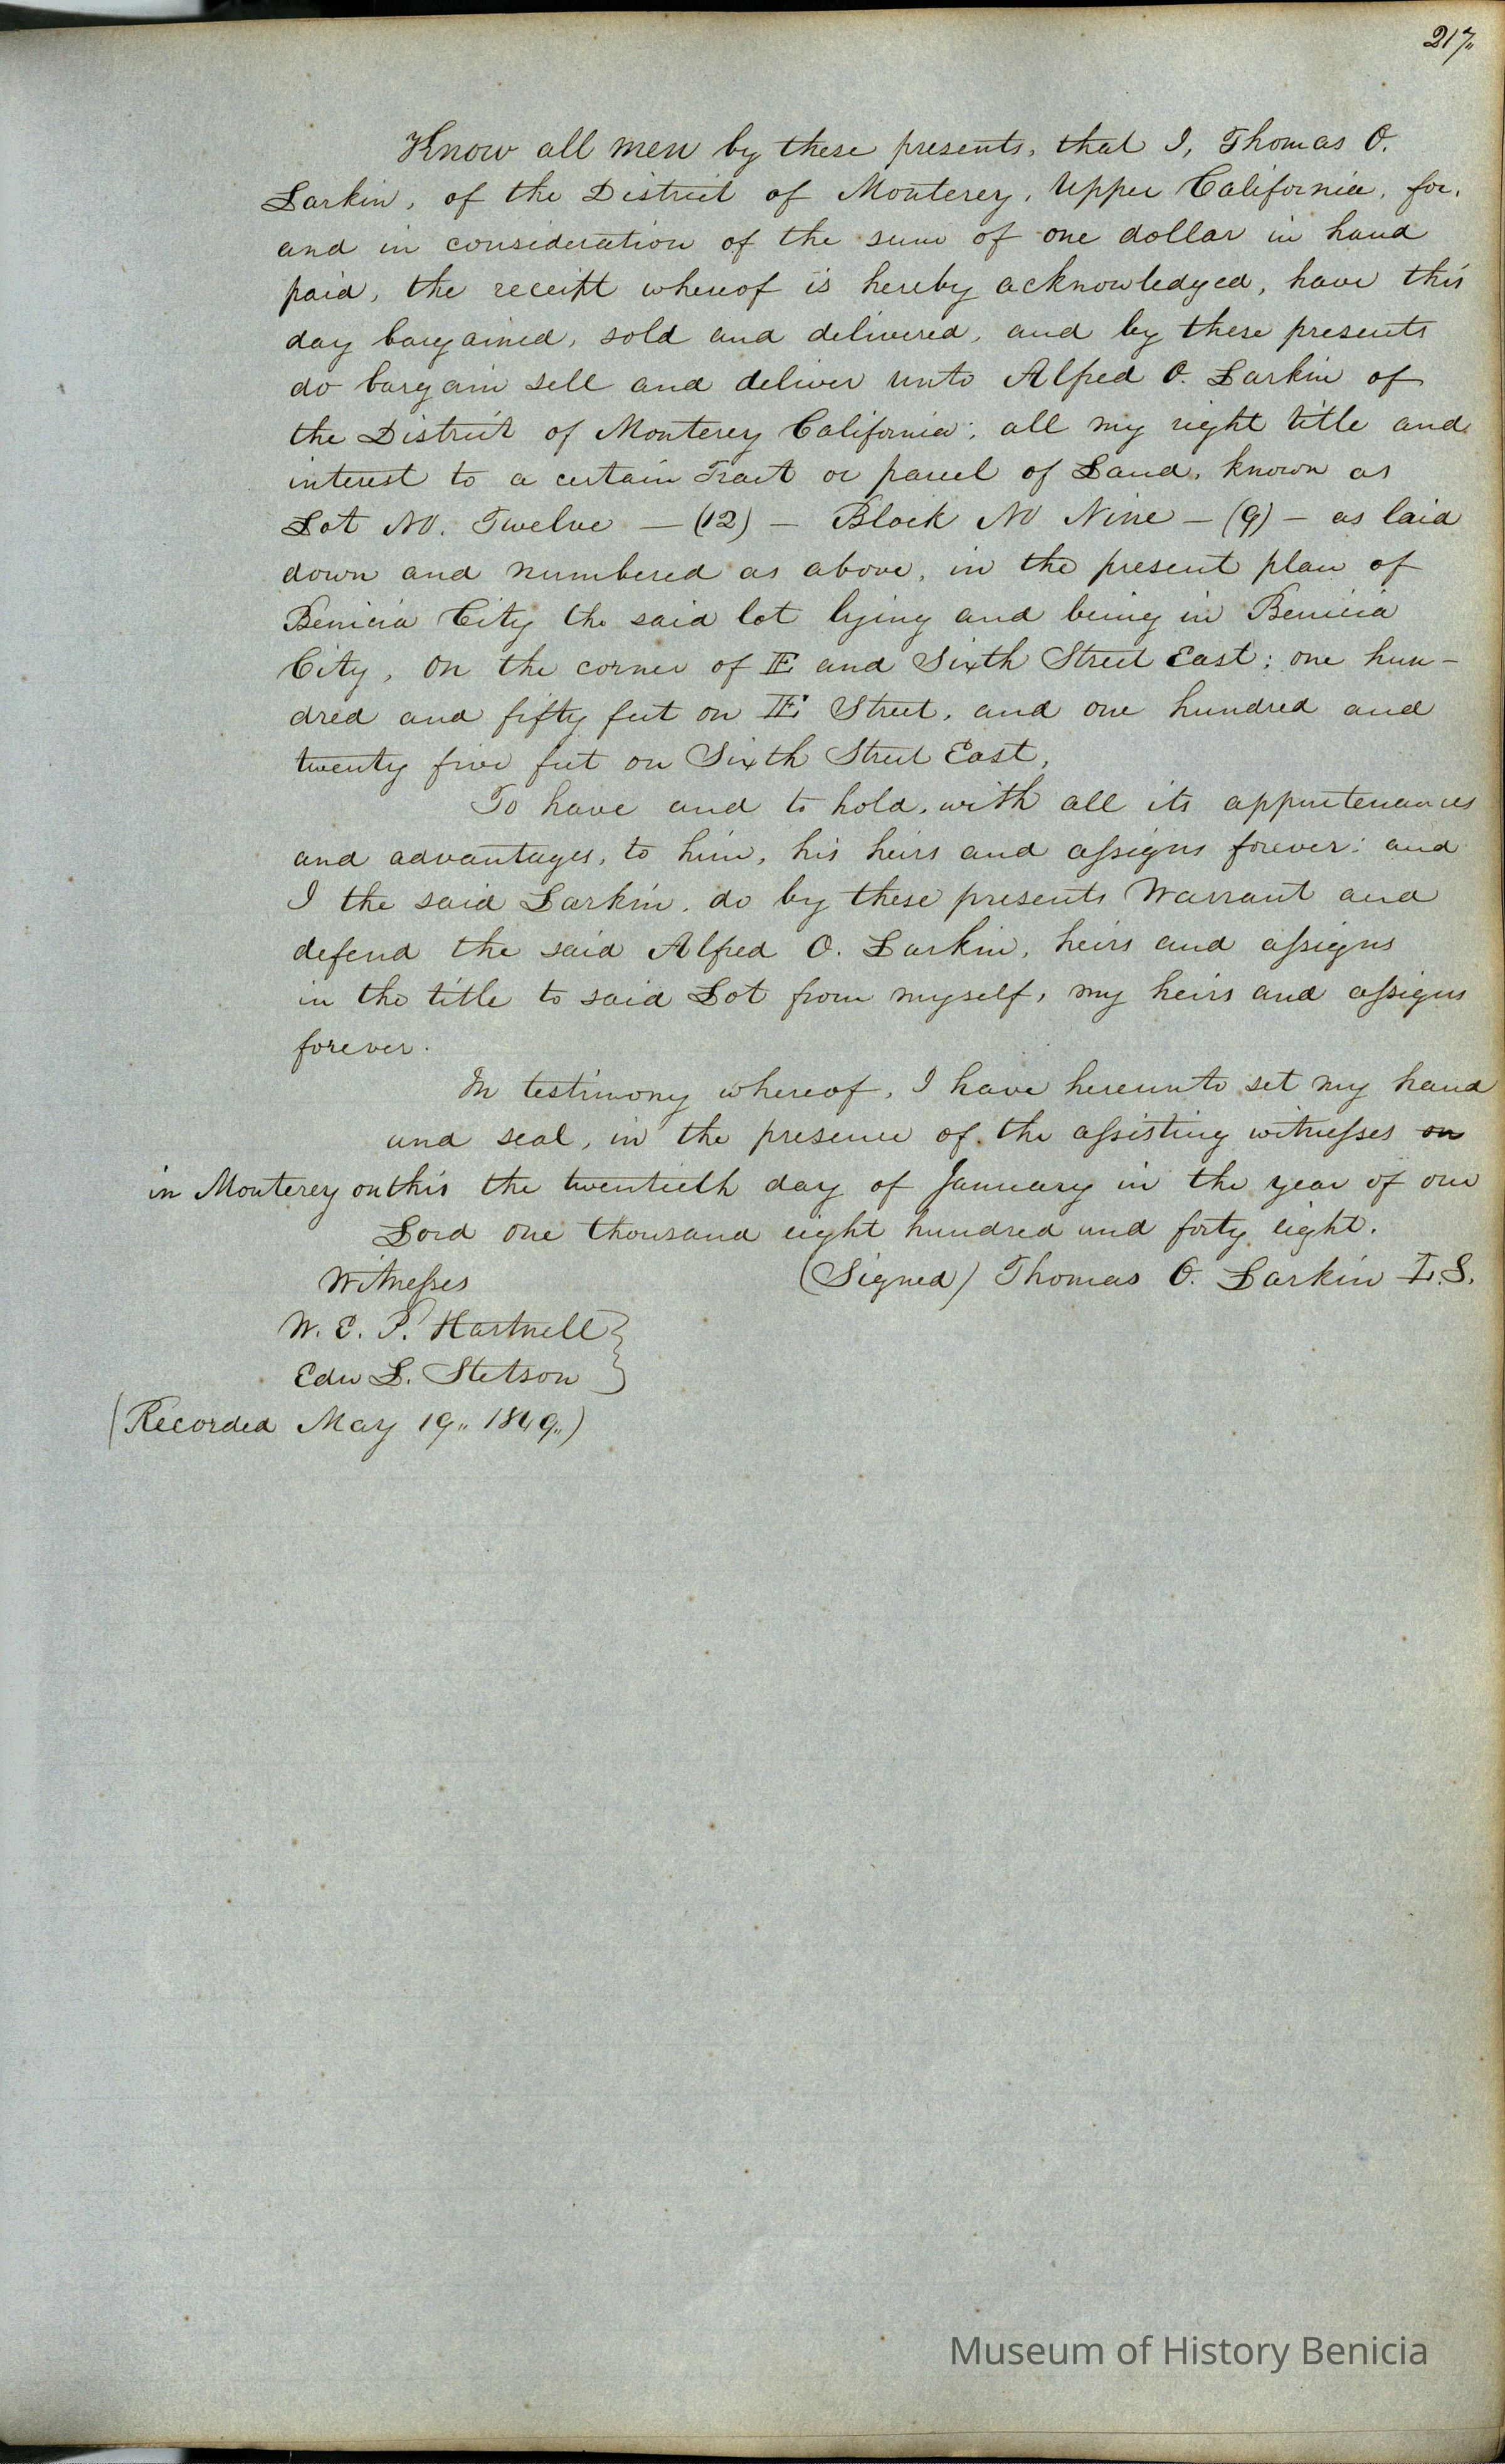 217.
Know all men by these presents, that I, Thomas O.
Larkin, of the District of Monterey, Upper California, for,
and in consideration of the sum of one dollar in hand
paid, the receipt whereof is hereby acknowledged, have this
day bargained, sold and delivered, and by these presents
do bargain sell and deliver unto Alfred O. Larkin of
the District of Monterey California; all my right title and
interest to a certain Tract or parcel of Land, known as
Lot No. Twelve — (12) — Block No Nine — (9) — as laid
down and numbered as above, in the present plan of
Benicia City the said lot lying and being in Benicia
City, on the corner of E and Sixth Street East; one hun-
dred and fifty feet on E Street, and one hundred and
twenty five feet on Sixth Street East,
To have and to hold, with all its appurtenances
and advantages, to him, his heirs and assigns forever; and
I the said Larkin, do by these presents Warrant and
defend the said Alfred O. Larkin, heirs and assigns
in the title to said Lot from myself, my heirs and assigns
forever.
In testimony whereof, I have hereunto set my hand
and seal, in the presence of the assisting witnesses on
in Monterey on this the twentieth day of January in the year of our
Lord one thousand eight hundred and forty eight.
Witnesses (Signed) Thomas O. Larkin L.S.
W. E. P. Hartnell
Edw L. Stetson
(Recorded May 19,, 1849,,)
Museum of History Benicia